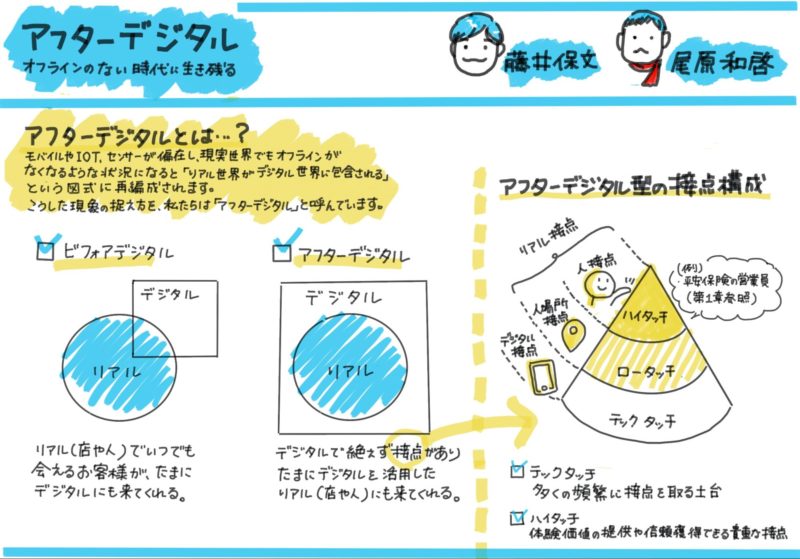 アフターデジタル
オフラインのない時代に生き残る
藤井保文
尾原和啓
アフターデジタルとは…?
モバイルやIOT、センサーが偏在し、現実世界でもオフラインが
なくなるような状況になると「リアル世界がデジタル世界に包含される」
という図式に再編成されます。
こうした現象の捉え方を、私たちは「アフターデジタル」と呼んでいます。
ビフォアデジタル
デジタル
リアル
リアル(店や人)でいつでも
会えるお客様が、たまに
デジタルにも来てくれる。
アフターデジタル
デジタル
リアル
デジタルで絶えず接点があり
たまにデジタルを活用した
リアル(店や人)にも来てくれる。
アフターデジタル型の接点構成
リアル接点
人接点
人場所
接点
デジタル
接点
(例)
・平安保険の営業員
(第1章参照)
ハイタッチ
ロータッチ
テックタッチ
テックタッチ
多くの頻繁に接点を取る土台
ハイタッチ
体験価値の提供や信頼獲得できる貴重な接点